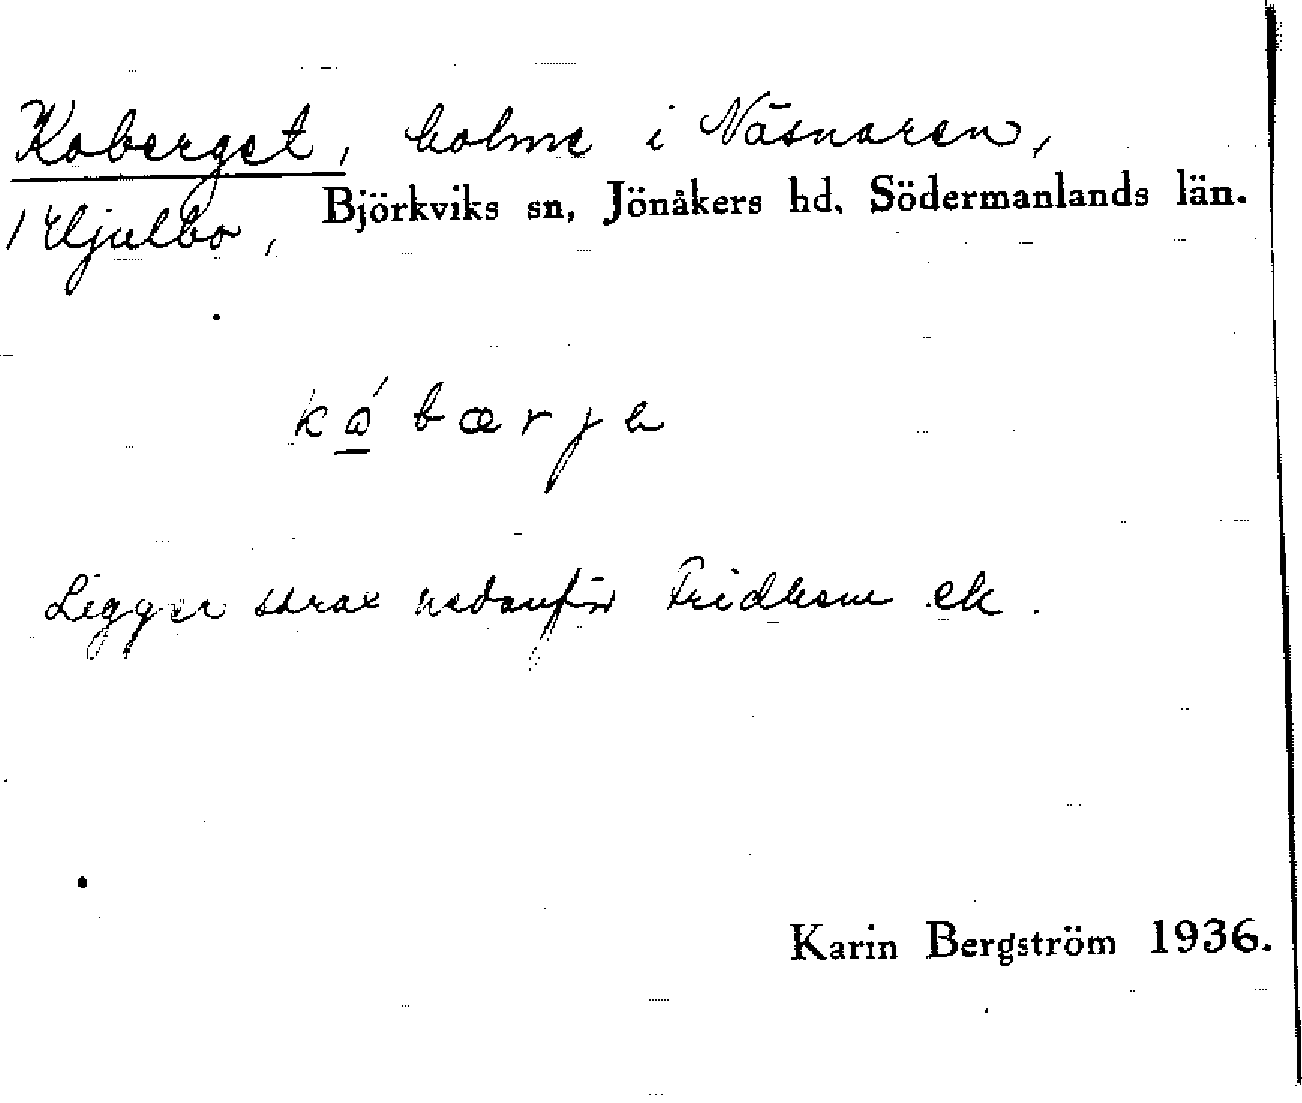 Koberget, holme i Näsnaren,
Björkviks sn, Jönåkers hd, Södermanlands län.
/ Hjulbo,
kǫ́ bærje
Ligger strax nedanför ek.
Karin Bergström 1936.